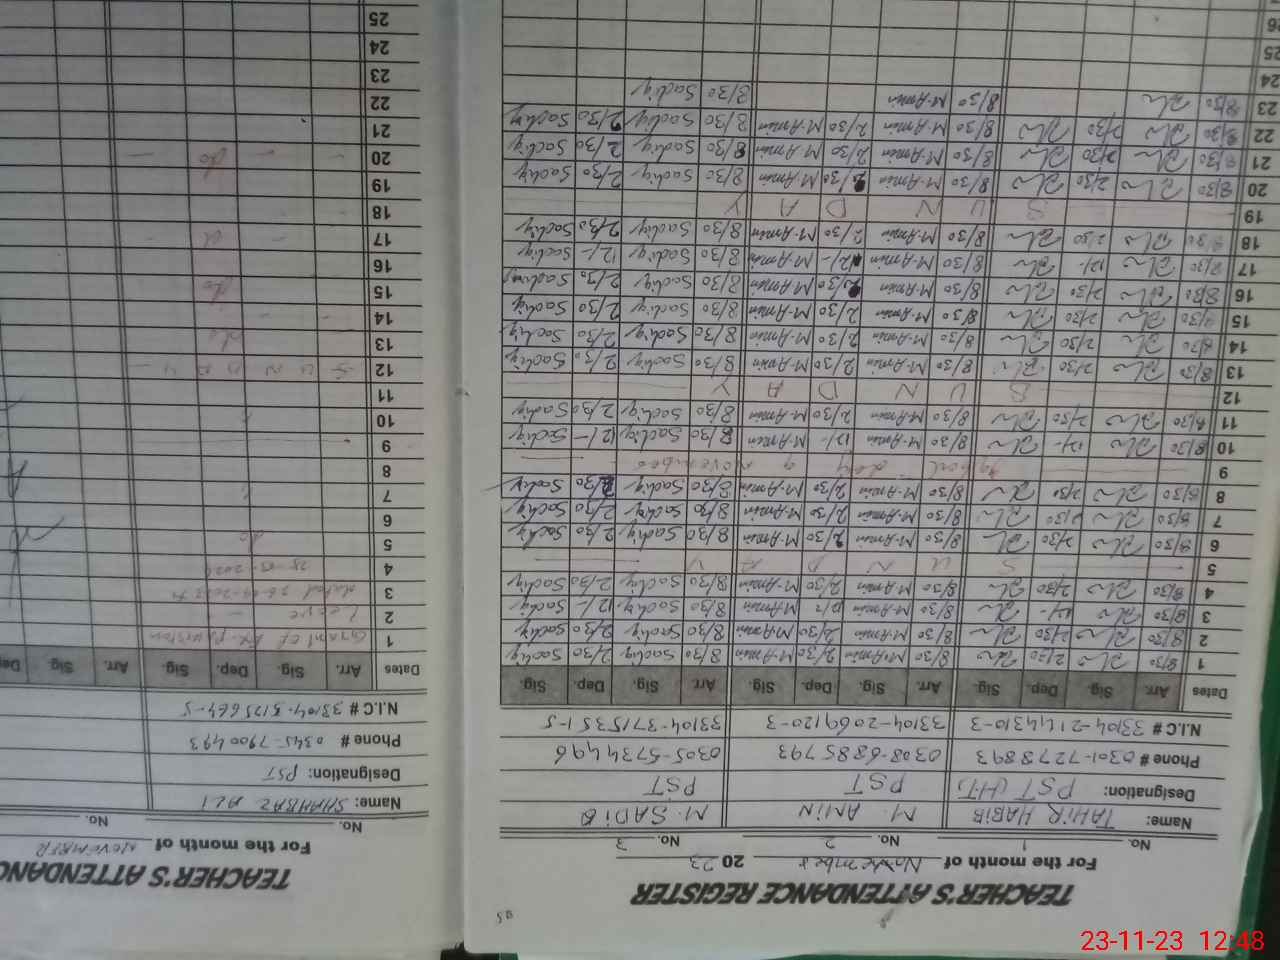 25
TEACHER'S ATTENDANCE REGISTER
For the month of November 2023
No. 1 No. 2 No. 3
Name: TAHIR HABIB M. AMIN M. SADIQ
Designation: PST (HT) PST PST
Phone # 0301-7273893 0308-6885793 0305-5734496
N.I.C # 33104-2144310-3 33104-2069120-3 33104-3715351-5
Dates Arr. Sig. Dep. Sig. Arr. Sig. Dep. Sig. Arr. Sig. Dep. Sig.
1 8/30 2/30 8/30 M.Amin 2/30 M.Amin 8/30 Sadiq 2/30 Sadiq
2 8/30 2/30 8/30 M.Amin 2/30 M.Amin 8/30 Sadiq 2/30 Sadiq
3 8/30 8/30 M.Amin M.Amin 8/30 Sadiq 12/- Sadiq
4 8/30 2/30 8/30 M.Amin 2/30 M.Amin 8/30 Sadiq 2/30 Sadiq
5 S U N D A Y
6 8/30 2/30 8/30 M.Amin 2/30 M.Amin 8/30 Sadiq 2/30 Sadiq
7 8/30 2/30 8/30 M.Amin 2/30 M.Amin 8/30 Sadiq 2/30 Sadiq
8 8/30 2/30 8/30 M.Amin 2/30 M.Amin 8/30 Sadiq 2/30 Sadiq
9 Iqbal day 9 November
10 8/30 12/- 8/30 M.Amin 12/- M.Amin 8/30 Sadiq 12/- Sadiq
11 8/30 2/30 8/30 M.Amin 2/30 M.Amin 8/30 Sadiq 2/30 Sadiq
12 S U N D A Y
13 8/30 2/30 8/30 M.Amin 2/30 M.Amin 8/30 Sadiq 2/30 Sadiq
14 8/30 2/30 8/30 M.Amin 2/30 M.Amin 8/30 Sadiq 2/30 Sadiq
15 8/30 2/30 8/30 M.Amin 2/30 M.Amin 8/30 Sadiq 2/30 Sadiq
16 8/30 2/30 8/30 M.Amin 2/30 M.Amin 8/30 Sadiq 2/30 Sadiq
17 8/30 12/- 8/30 M.Amin 12/- M.Amin 8/30 Sadiq 12/- Sadiq
18 8/30 2/30 8/30 M.Amin 2/30 M.Amin 8/30 Sadiq 2/30 Sadiq
19 S U N D A Y
20 8/30 2/30 8/30 M.Amin 2/30 M.Amin 8/30 Sadiq 2/30 Sadiq
21 8/30 2/30 8/30 M.Amin 2/30 M.Amin 8/30 Sadiq 2/30 Sadiq
22 8/30 2/30 8/30 M.Amin 2/30 M.Amin 8/30 Sadiq 2/30 Sadiq
23 8/30 8/30 M.Amin 8/30 Sadiq
24
25
26
TEACHER'S ATTENDANC
For the month of NOVEMBER
No. No.
Name: SHAHBAZ ALI
Designation: PST
Phone # 0345-7900493
N.I.C # 33104-5175664-5
Dates Arr. Sig. Dep. Sig. Arr. Sig. Dep
1 Grant of Ex-Pakistan
2 Leave
3 dated
4
5 do
6
7
8
9
10
11
12 S U N D A Y
13 do
14
15 do
16
17
18
19
20 do
21
22
23
24
25
23-11-23 12:48